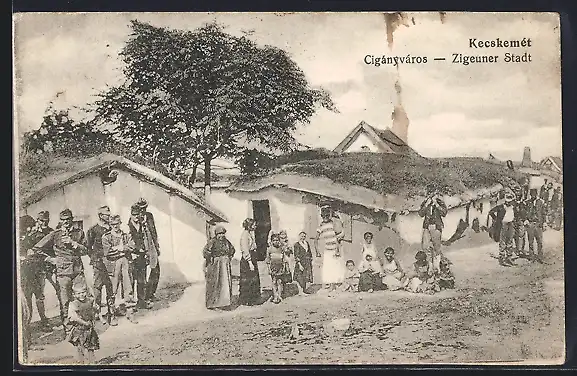 Kecskemét
Cigányváros — Zigeuner Stadt